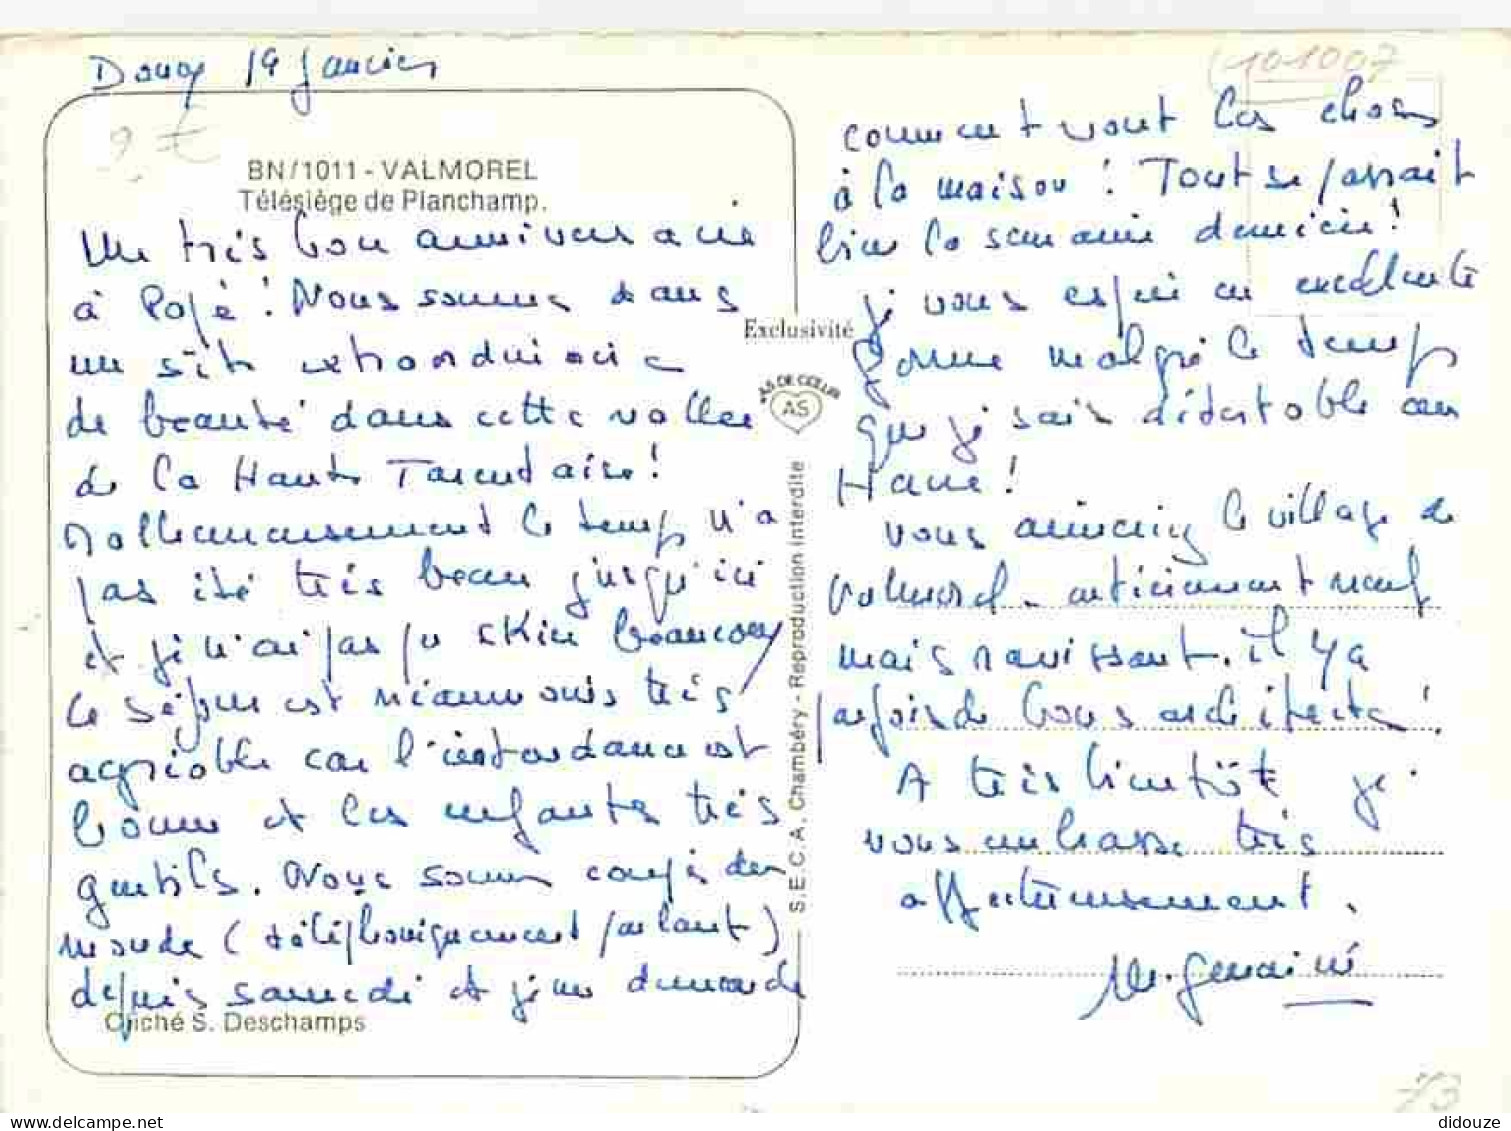 Doucy 19 Janvier
2 €
BN/1011 - VALMOREL
Télésiège de Planchamp.
Un très bon anniversaire
à Papé ! Nous sommes dans
un site extraordinaire
de beauté dans cette vallée
de la Haute Tarentaise !
Malheureusement le temps n'a
pas été très beau jusqu'ici
et je n'ai pas pu skier beaucoup
Le séjour est néanmoins très
agréable car l'intendance est
bonne et les enfants très
gentils. Nous sommes coupés du
monde (téléphoniquement parlant)
depuis samedi et je me demande
Cliché S. Deschamps
Exclusivité
AS DE CŒUR
AS
S.E.C.A. Chambéry - Reproduction interdite
101007
comment vont les choses
à la maison ! Tout se passait
bien la semaine dernière !
Je vous espère en excellente
forme malgré le temps
que je sais détestable au
Havre !
Vous aimeriez le village de
Valmorel - entièrement neuf
mais ravissant. il y a
parfois de bons architectes !
A très bientôt je
vous embrasse très
affectueusement.
M. Germaine
73
didouze